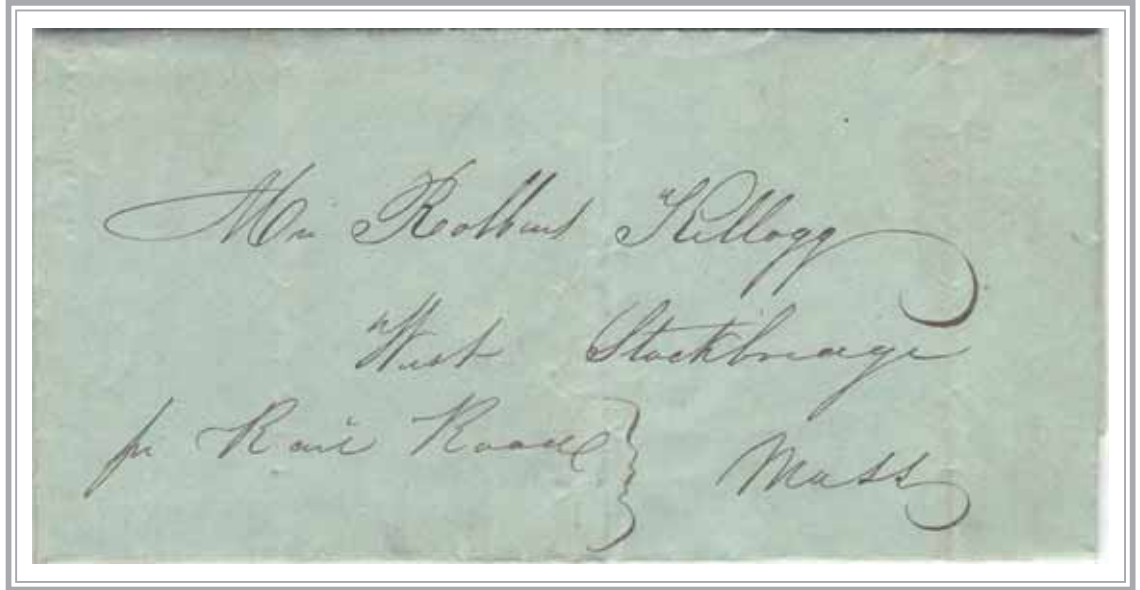 Mr Robbins Kellogg
West Stockbridge
pr Rail Road } Mass